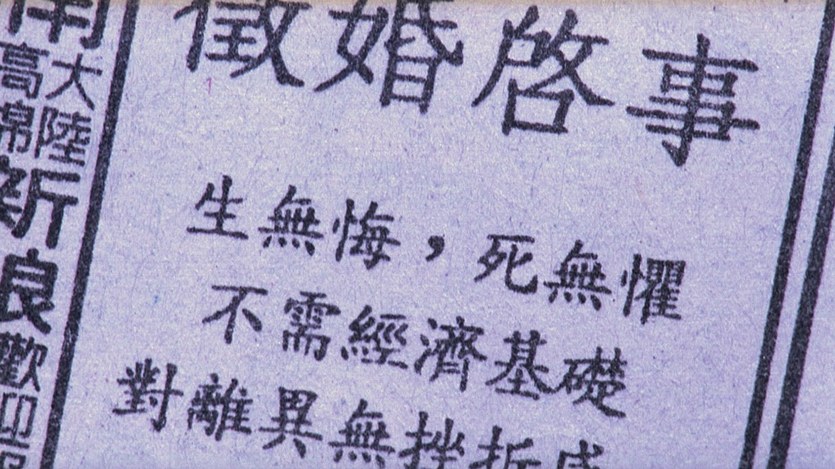 徵婚啓事
生無悔，死無懼
不需經濟基礎
對離異無挫折感
大陸
高棉
新良歡迎